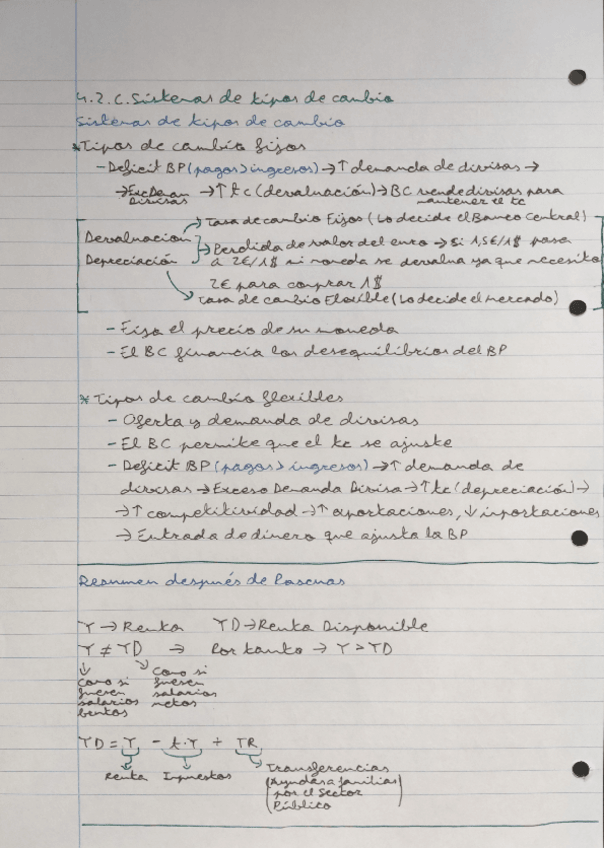 4.2.C. Sistemas de tipos de cambio
Sistemas de tipos de cambio
* Tipos de cambio fijos
- Deficit BP (pagos > ingresos) → ↑ demanda de divisas →
→ Exc Deman Divisas → ↑ tc (devaluación) → BC vende divisas para mantener el tc
→ Tasa de cambio Fijos (Lo decide el Banco Central)
Devaluacion
Depreciación
→ Perdida de valor del euro → Si 1,5€/1$ pasa
a 2€/1$ mi moneda se devalua ya que necesito
2€ para comprar 1$
→ Tasa de cambio Flexible (Lo decide el mercado)
- Fija el precio de su moneda
- El BC financia los desequilibrios del BP
* Tipos de cambio flexibles
- Oferta y demanda de divisas
- El BC permite que el tc se ajuste
- Deficit BP (pagos > ingresos) → ↑ demanda de
divisas → Exceso Demanda Divisa → ↑ tc (depreciación) →
→ ↑ competitividad → ↑ exportaciones, ↓ importaciones
→ Entrada de dinero que ajusta la BP
Resumen después de Pascuas
Y → Renta YD → Renta Disponible
Y ≠ YD → Por tanto → Y > YD
↓ Como si fuesen salarios brutos
↘ Como si fuesen salarios netos
YD = Y - t.Y + TR
Renta Impuestos → Transferencias
(Ayudas a familias
por el Sector
Público)